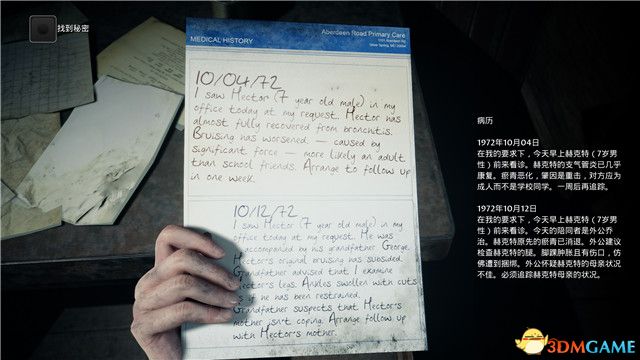 找到秘密
MEDICAL HISTORY
Aberdeen Road Primary Care
10/04/72
I saw Hector (7 year old male) in my
office today at my request. Hector has
almost fully recovered from bronchitis.
Bruising has worsened. — caused by
significant force — more likely an adult
than school friends. Arrange to follow up
in one week.
10/12/72
I saw Hector (7 year old male) in my
office today at my request. He was
accompanied by his grandfather George.
Hector's original bruising has subsided.
Grandfather advised that I examine
Hector's legs. Ankles swollen with cuts
as if he has been restrained.
Grandfather suspects that Hector's
mother isn't coping. Arrange follow up
with Hector's mother.
病历
1972年10月04日
在我的要求下，今天早上赫克特（7岁男
性）前来看诊。赫克特的支气管炎已几乎
康复。瘀青恶化，肇因是重击，对方应为
成人而不是学校同学。一周后再追踪。
1972年10月12日
在我的要求下，今天早上赫克特（7岁男
性）前来看诊。今天的陪同者是外公乔
治。赫克特原先的瘀青已消退。外公建议
检查赫克特的腿。脚踝肿胀且有伤口，仿
佛遭到捆绑。外公怀疑赫克特的母亲状况
不佳。必须追踪赫克特母亲的状况。
3DMGAME